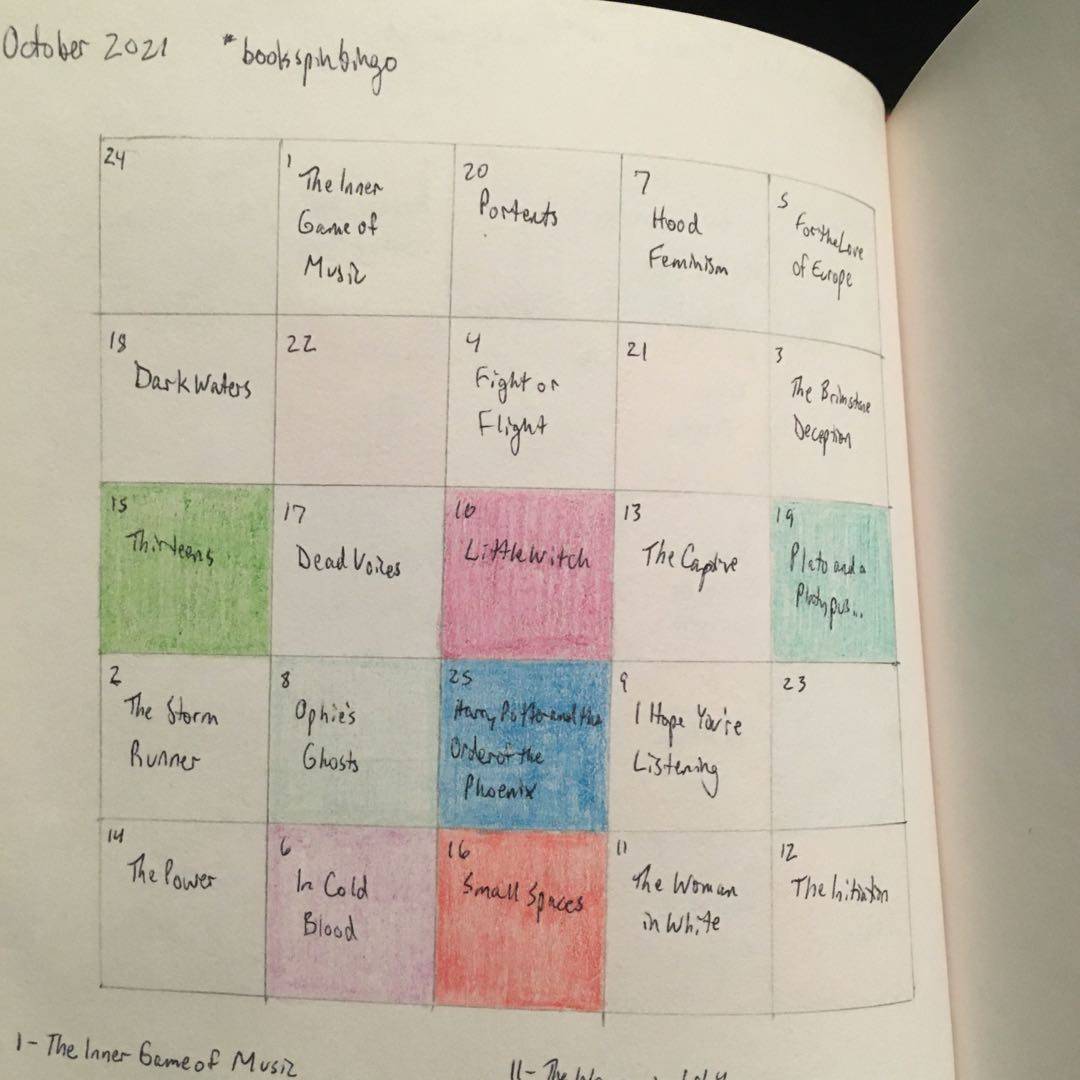 October 2021 #bookspinbingo
24
1
The Inner
Game of
Music
20
Portents
7
Hood
Feminism
5
For the Love
of Europe
18
Dark Waters
22
4
Fight or
Flight
21
3
The Brimstone
Deception
15
Thirteens
17
Dead Voices
10
Little Witch
13
The Captive
19
Plato and a
Platypus...
2
The Storm
Runner
8
Ophie's
Ghosts
25
Harry Potter and the
Order of the
Phoenix
9
I Hope You're
Listening
23
14
The Power
6
In Cold
Blood
16
Small Spaces
11
The Woman
in White
12
The Initiation
1- The Inner Game of Music
11- The